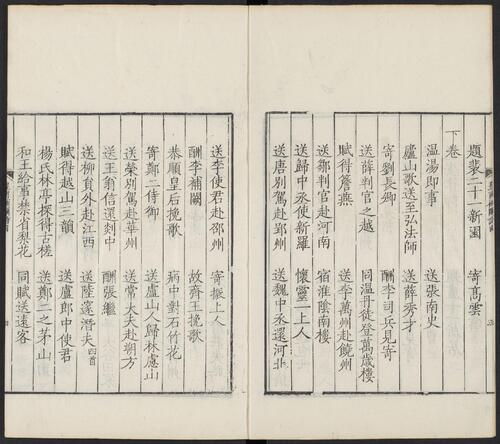 題裴二十一新園　寄高雲
下卷
溫湯即事　送張南史
廬山歌送至弘法師　送薛秀才
寄劉長卿　酬李司兵見寄
送薛判官之越　同溫丹徒登萬歲樓
賦得簷燕　送李萬州赴饒州
送鄒判官赴河南　宿淮陰南樓
送歸中丞使新羅　懷靈一上人
送唐別駕赴郢州　送魏中丞還河北
送李使君赴邵州　寄振上人
酬李補闕　故齊王挽歌
恭順皇后挽歌　病中對石竹花
寄鄭二侍御　送盧山人歸林慮山
送榮別駕赴華州　送常大夫赴朔方
送王翁信還剡中　酬張繼
送柳員外赴江西　送陸邃潛夫四首
賦得越山三韻　送盧郎中使君
楊氏林亭探得古槎　送鄭二之茅山
和王給事禁省梨花　同賦送遠客